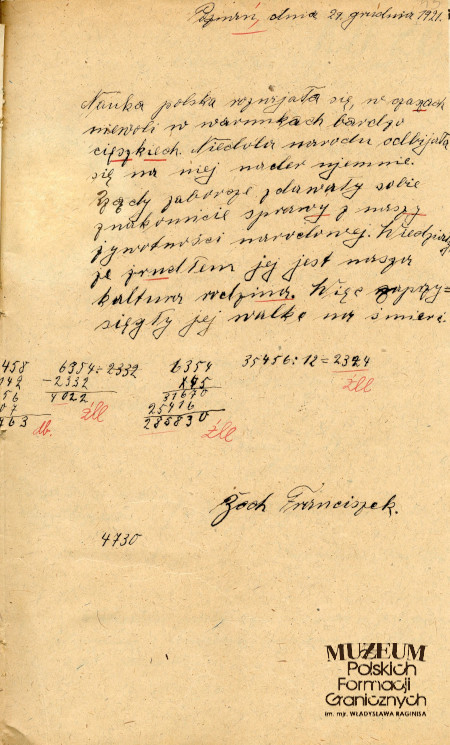 Poznań, dnia 29. grudnia 1921.
Nauka polska rozwjała się, w czazach
niewoli w warunkach bardzo
cięszkiech. Niedola narodu odbijała
się na niej nader ujemnie.
Rządy zaborcze zdawały sobie
znakomicie sprawy z naszy
żywotności narodowej. Wiedziały
że zrudłem jej jest nasza
kultura rodzina. Więc zaprzy=
sięgły jej walkę na śmierć.
458 6354-2332 6354 35456:12=2324
042 -2332 x45 źle
56 4022 31670
07 źle 25416
463 db. 285830 źle
Zoch Franciszek.
4730
MUZEUM
Polskich
Formacji
Granicznych
im. mjr. WŁADYSŁAWA RAGINISA